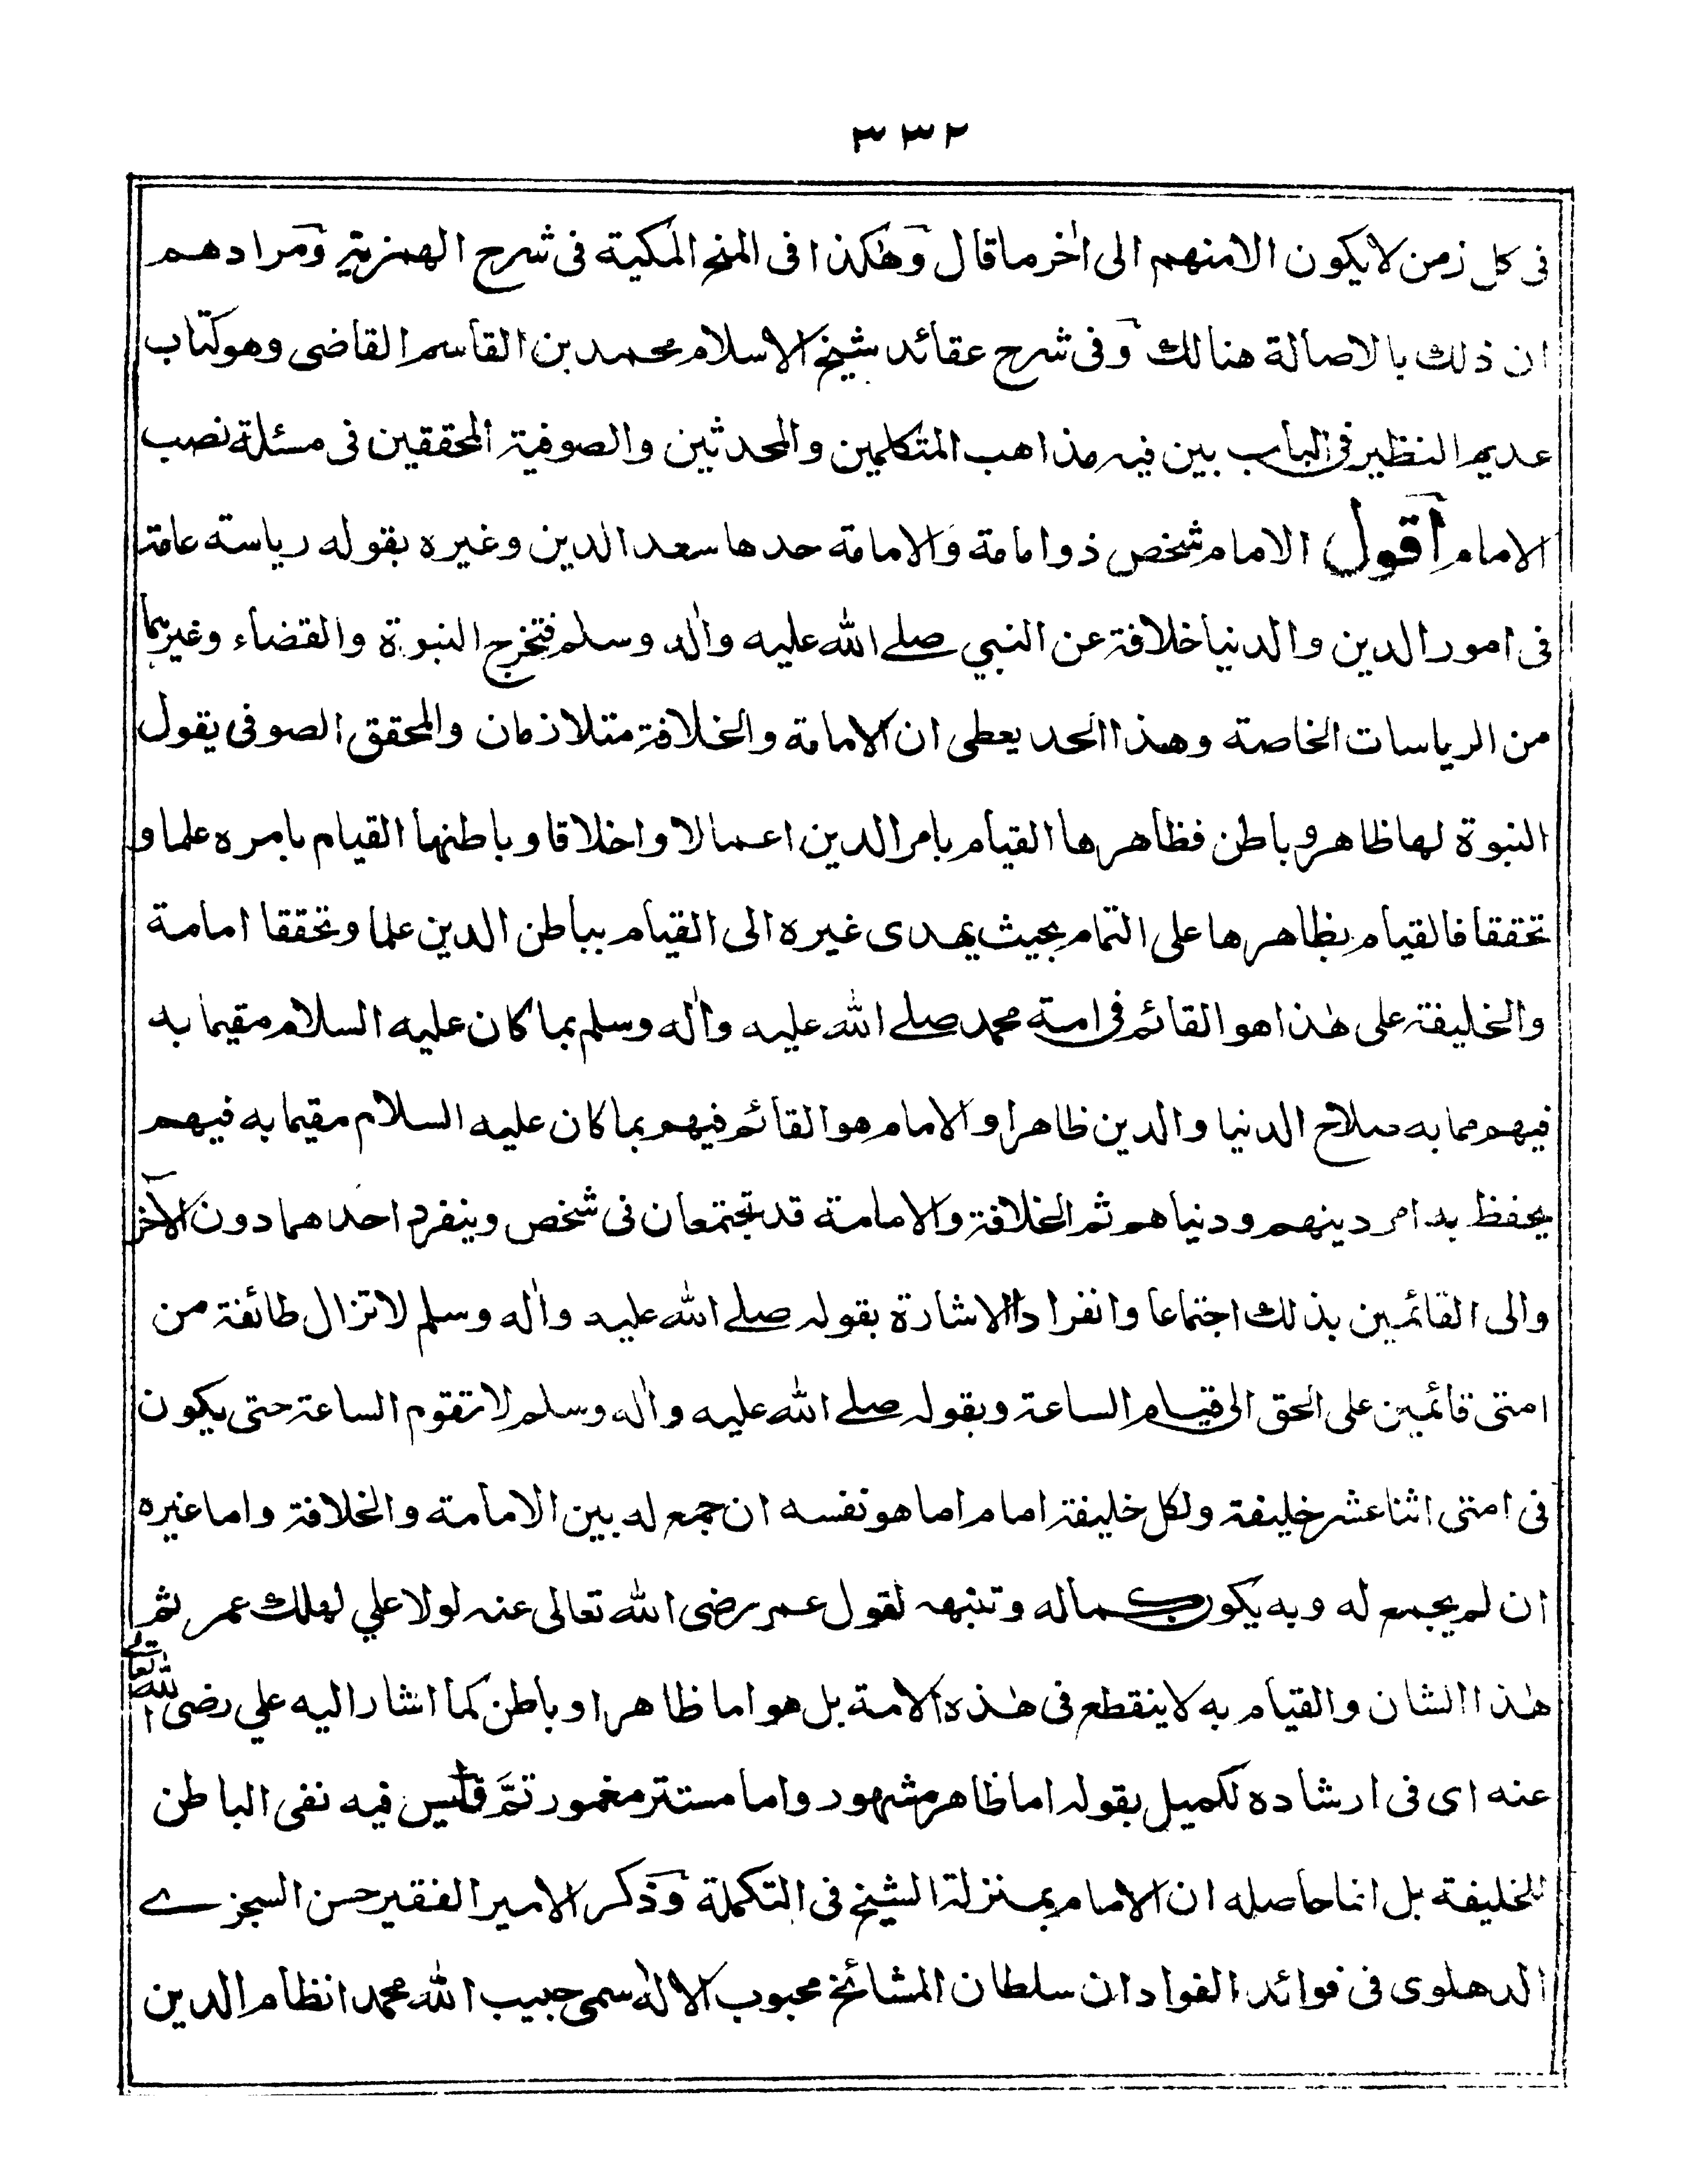 ٣٣٢
فى كل زمن لا يكون الا منهم الى اٰخر ما قال وهٰكذا فى المنح المكية فى شرح الهمزية ومرادهم
ان ذلك بالاصالة هنالك وفى شرح عقائد شيخ الاسلام محمد بن القاسم القاضى وهو كتاب
عديم النظير فى الباب بين فيه مذاهب المتكلمين والمحدثين والصوفية المحققين فى مسئلة نصب
الامام أقول الامام شخص ذو امامة والامامة حدها سعد الدين وغيره بقوله رياسة عامة
فى امور الدين والدنيا خلافة عن النبي صلے الله عليه واٰله وسلم فتخرج النبوة والقضاء وغيرهما
من الرياسات الخاصة وهذا الحد يعطى ان الامامة والخلافة متلازمان والمحقق الصوفى يقول
النبوة لها ظاهر وباطن فظاهرها القيام بامر الدين اعمالا واخلاقا وباطنها القيام بامره علما و
تحققا فالقيام بظاهرها على التمام بحيث يهدى غيره الى القيام بباطن الدين علما وتحققا امامة
والخليفة على هٰذا هو القائم فى امة محمد صلے الله عليه واٰله وسلم بما كان عليه السلام مقيما به
فيهم مما به صلاح الدنيا والدين ظاهرا والامام هو القائم فيهم بما كان عليه السلام مقيما به فيهم
يحفظ به امر دينهم ودنياهم ثم الخلافة والامامة قد تجتمعان فى شخص وينفرد احدهما دون الآخر
والى القائمين بذلك اجتماعا وانفرادا الاشارة بقوله صلے الله عليه واٰله وسلم لا تزال طائفة من
امتى قائمين على الحق الى قيام الساعة وبقوله صلے الله عليه واٰله وسلم لا تقوم الساعة حتى يكون
فى امتى اثنا عشر خليفة ولكل خليفة امام اما هو نفسه ان جمع له بين الامامة والخلافة واما غيره
ان لم يجمع له وبه يكون كماله وتنبه لقول عمر رضى الله تعالى عنه لولا علي لهلك عمر ثم
هٰذا الشان والقيام به لا ينقطع فى هٰذه الامة بل هو اما ظاهر او باطن كما اشار اليه علي رضى الله تعالى
عنه اى فى ارشاده لكميل بقوله اما ظاهر مشهور واما مستتر مغمور تمَّ فليس فيه نفى الباطن
للخليفة بل انما حاصله ان الامام بمنزلة الشيخ فى التكملة وذكر الامير الفقير حسن السجزے
الدهلوى فى فوائد الفواد ان سلطان المشائخ محبوب الالٰه سمى حبيب الله محمدا نظام الدين